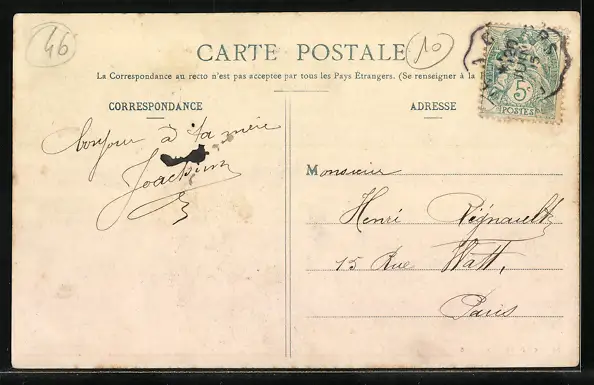 46
10
CARTE POSTALE
La Correspondance au recto n'est pas acceptée par tous les Pays Étrangers. (Se renseigner à la
CORRESPONDANCE
ADRESSE
5c
POSTES
bonjour à ta mère
Joachim
Monsieur
Henri Régnault
15 Rue Watt,
Paris